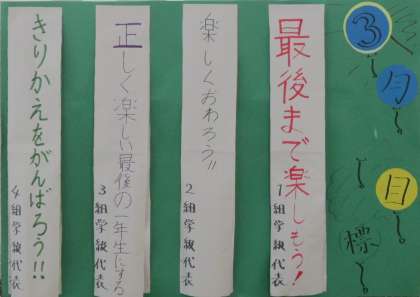 3月目標
最後まで楽しもう!
1組学級代表
楽しくおわろう!!
2組学級代表
正しく楽しい最後の一年生にする
3組学級代表
きりかえをがんばろう!!
4組学級代表